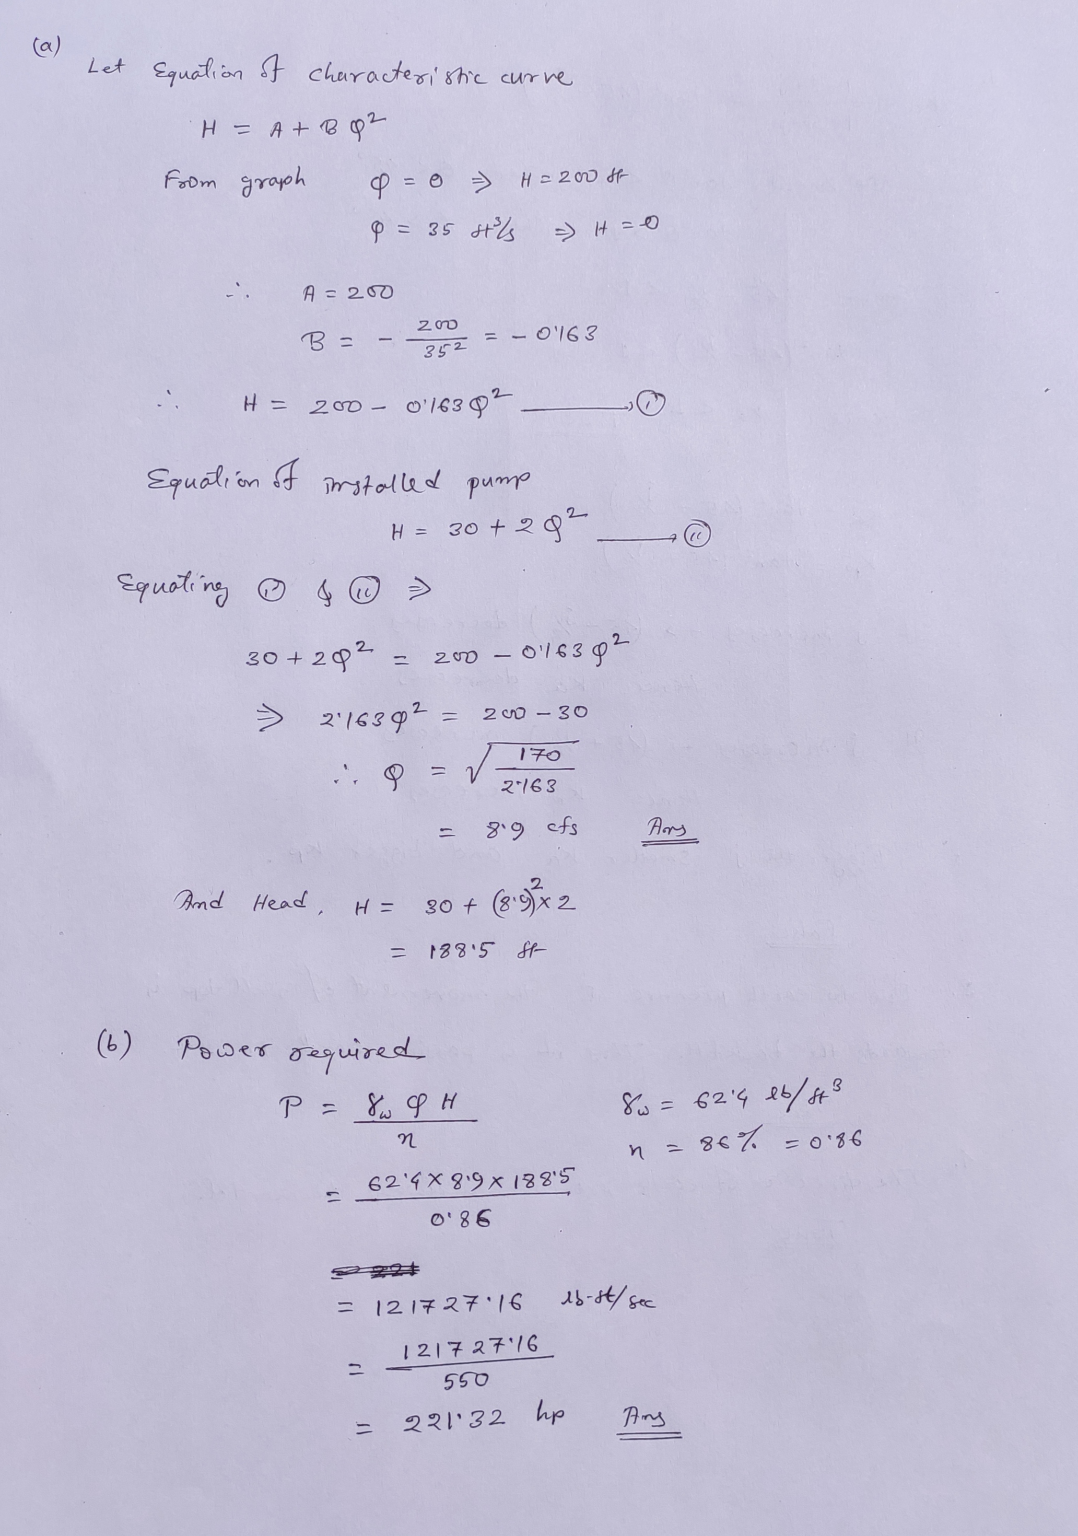 (a)
Let Equation of characteristic curve
H = A + B Q²
From graph Q = 0 ⇒ H = 200 ft
Q = 35 ft³/s ⇒ H = 0
∴ A = 200
B = - 200/35² = - 0.163
∴ H = 200 - 0.163 Q² → (i)
Equation of installed pump
H = 30 + 2 Q² → (ii)
Equating (i) & (ii) ⇒
30 + 2Q² = 200 - 0.163 Q²
⇒ 2.163 Q² = 200 - 30
∴ Q = √(170/2.163)
= 8.9 cfs Ans
And Head, H = 30 + (8.9)² × 2
= 188.5 ft
(b) Power required
P = γw Q H / n γw = 62.4 lb/ft³
n = 86% = 0.86
= 62.4 × 8.9 × 188.5 / 0.86
= 121727.16 lb-ft/sec
= 121727.16 / 550
= 221.32 hp Ans